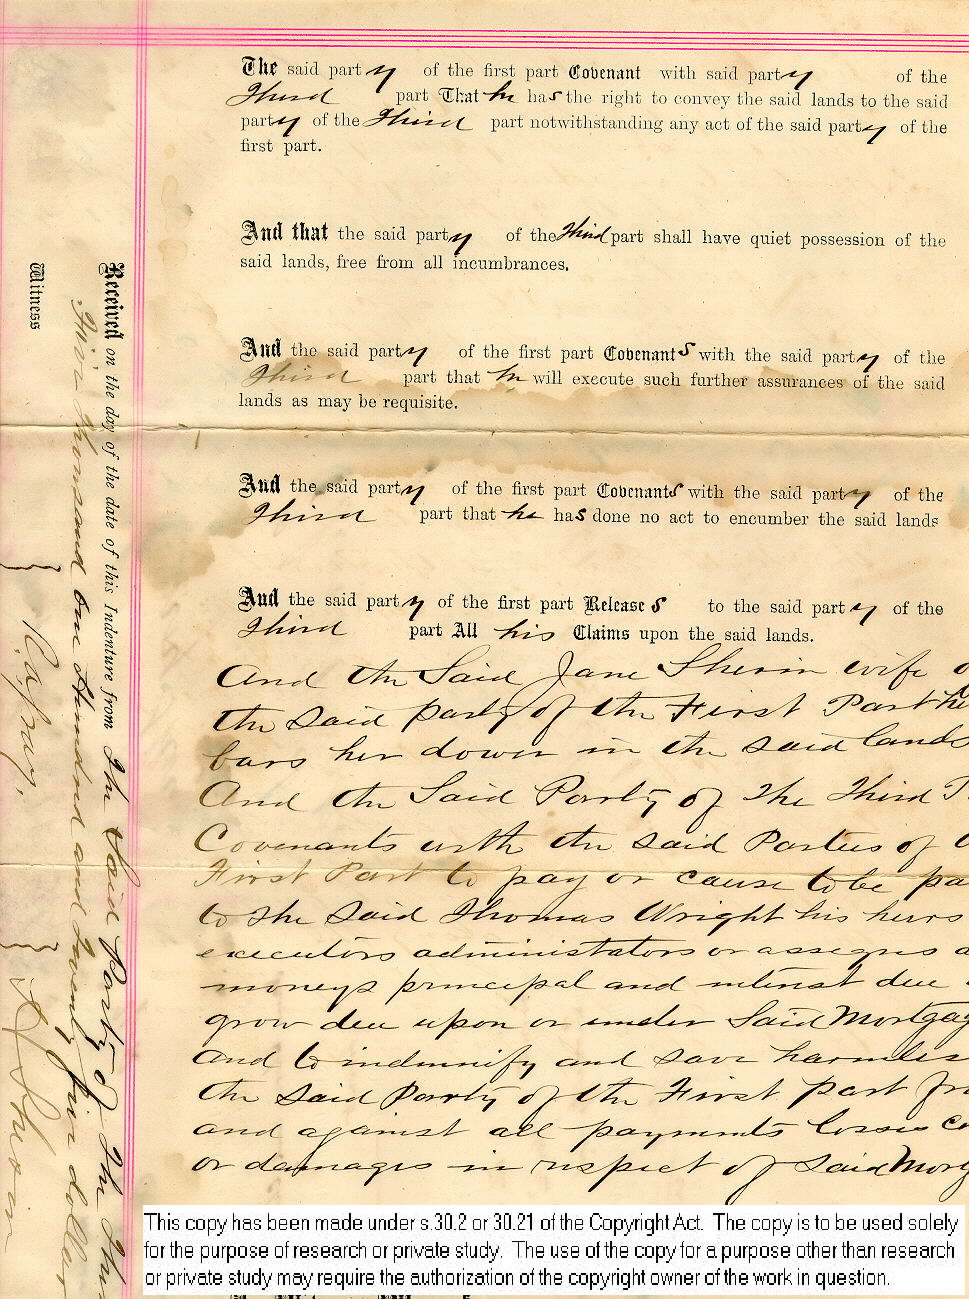 The said party of the first part Covenant with said party of the
Third part That he has the right to convey the said lands to the said
party of the Third part notwithstanding any act of the said party of the
first part.
And that the said party of the Third part shall have quiet possession of the
said lands, free from all incumbrances.
And the said party of the first part Covenants with the said party of the
Third part that he will execute such further assurances of the said
lands as may be requisite.
And the said party of the first part Covenants with the said party of the
Third part that he has done no act to encumber the said lands
And the said party of the first part Releases to the said party of the
Third part All his Claims upon the said lands.
And the Said Jane Sherin wife
the said party of the First Part he
bars her dower in the said lands
And the Said Party of The Third
Covenants with the said Parties of
First Part to pay or cause to be pa
to the said Thomas Wright his heirs
executors administrators or assigns a
moneys principal and interest due
grow due upon or under Said Mortgag
and to indemnify and save harmless
the said Party of the First part fr
and against all payments losses co
or damages in respect of said Mortg
Received on the day of the date of this Indenture from The Said Party of The Thi
Five Thousand one Hundred and Twenty five dollar
Witness
A Sherin
This copy has been made under s.30.2 or 30.21 of the Copyright Act. The copy is to be used solely
for the purpose of research or private study. The use of the copy for a purpose other than research
or private study may require the authorization of the copyright owner of the work in question.